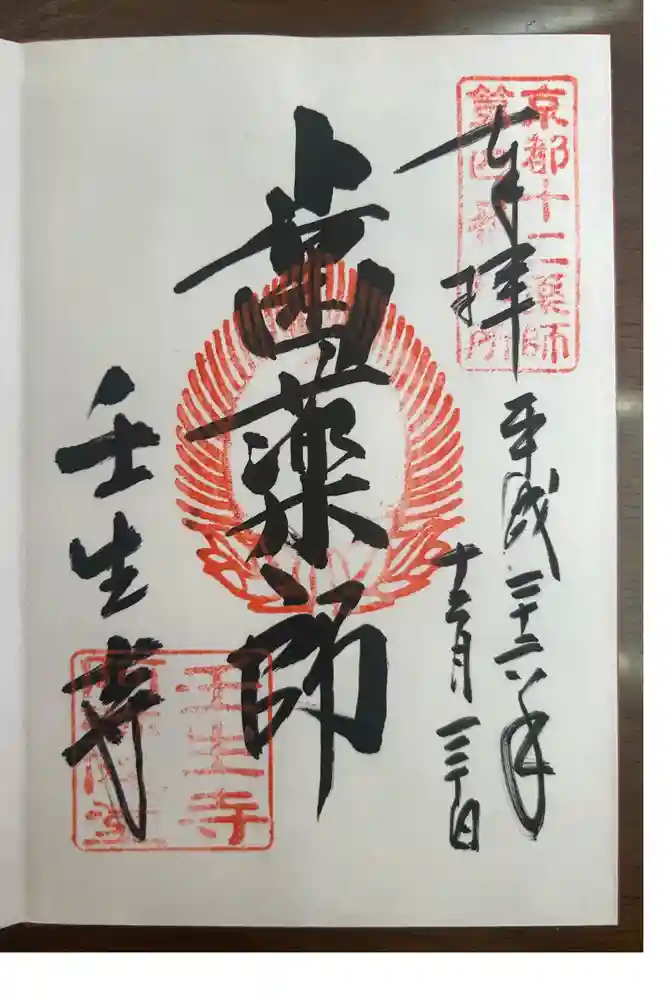 京都十二薬師
第四番
奉拝
平成二十六年
十二月三十日
歯薬師
壬生寺
壬生寺